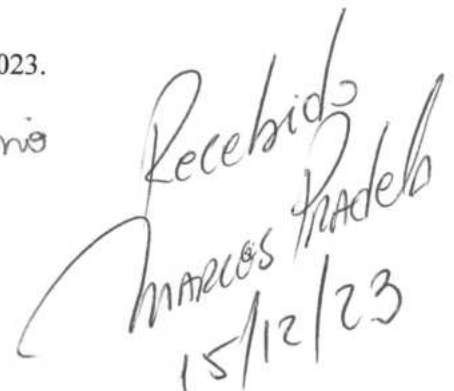 023.
Recebido
MARCOS PRAdelA
15/12/23